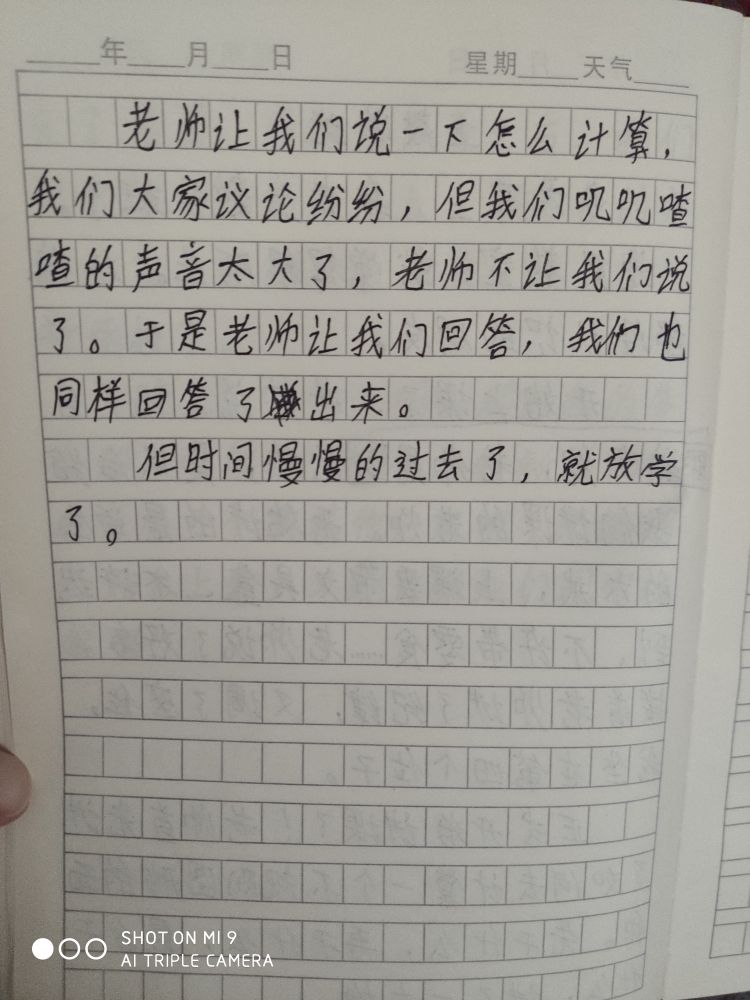 年 月 日 星期 天气
老师让我们说一下怎么计算，
我们大家议论纷纷，但我们叽叽喳
喳的声音太大了，老师不让我们说
了。于是老师让我们回答，我们也
同样回答了出来。
但时间慢慢的过去了，就放学
了。
SHOT ON MI 9
AI TRIPLE CAMERA